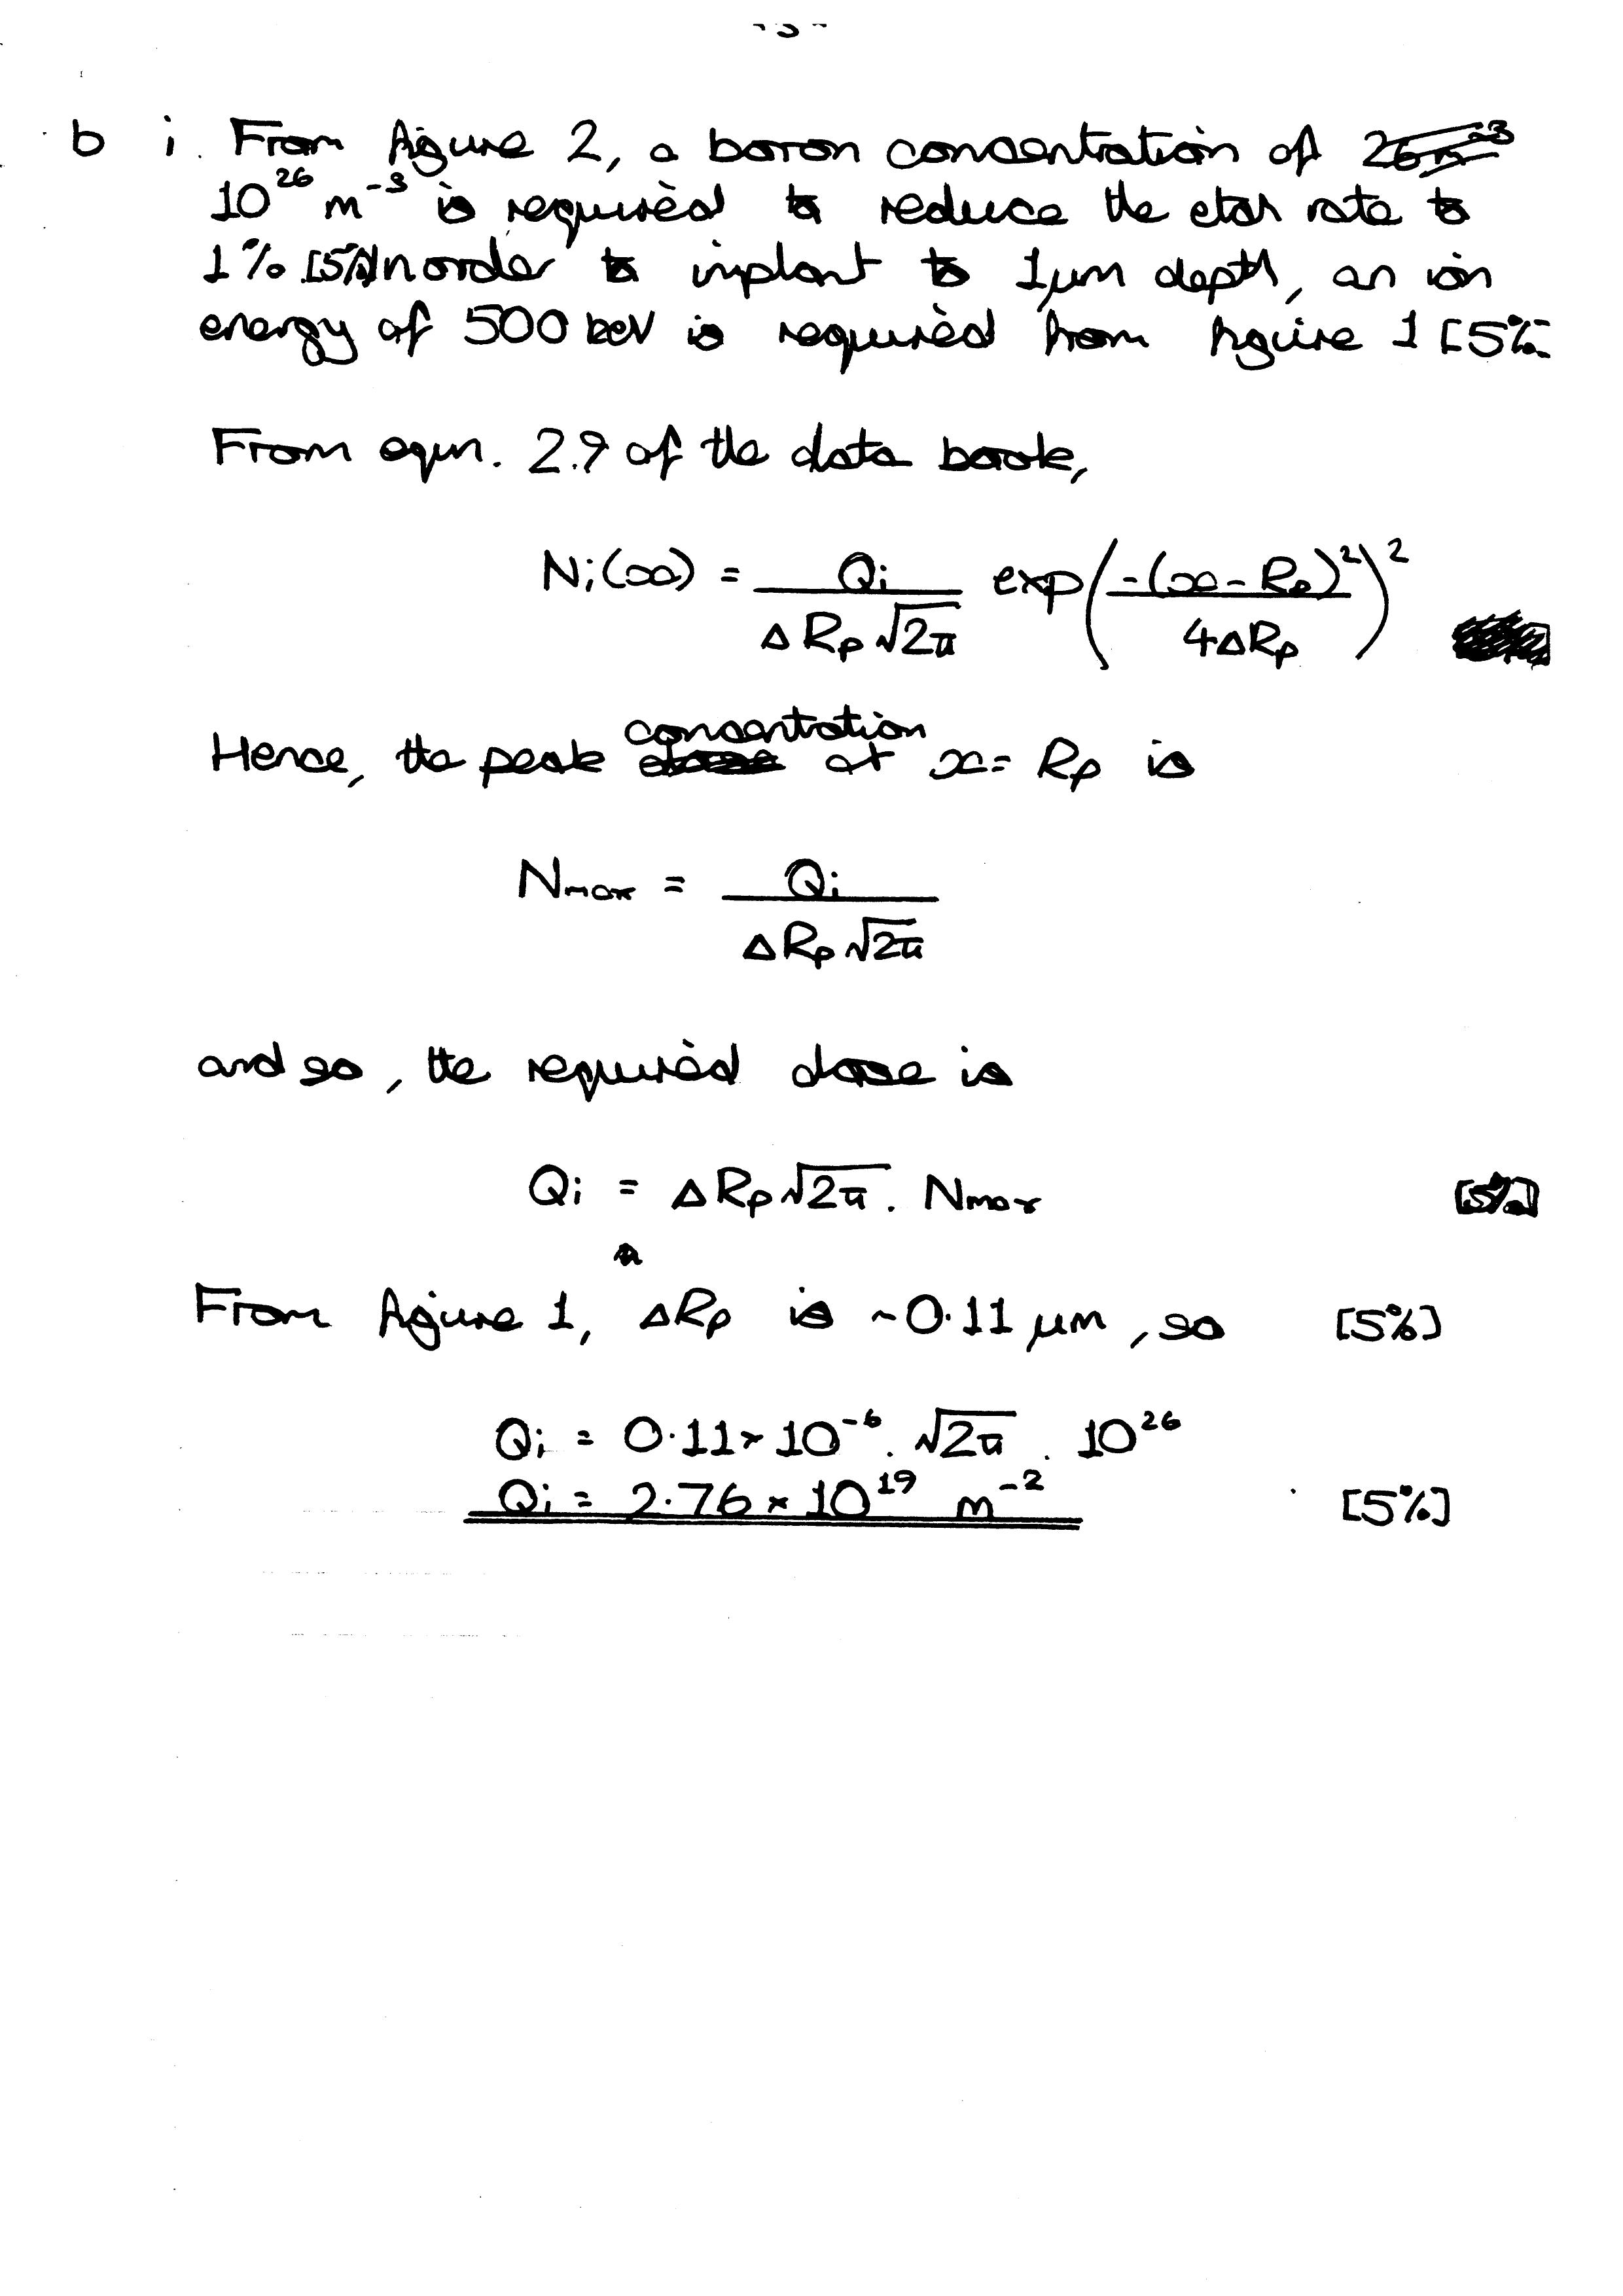 - 3 -
b i. From figure 2, a boron concentration of
10²⁶ m⁻³ is required to reduce the etch rate to
1% [5%] In order to implant to 1μm depth, an ion
energy of 500 keV is required from figure 1 [5%
From eqn. 2.9 of the data book,
Ni(x) = Qi / (ΔRp√2π) exp(-(x-Rp)² / 4ΔRp)²
concentration
Hence, the peak at x = Rp is
Nmax = Qi / (ΔRp√2π)
and so, the required dose is
Qi = ΔRp√2π . Nmax [5%]
From figure 1, ΔRp is ~0.11 μm, so [5%]
Qi = 0.11 × 10⁻⁶ . √2π . 10²⁶
Qi = 2.76 × 10¹⁹ m⁻² [5%]